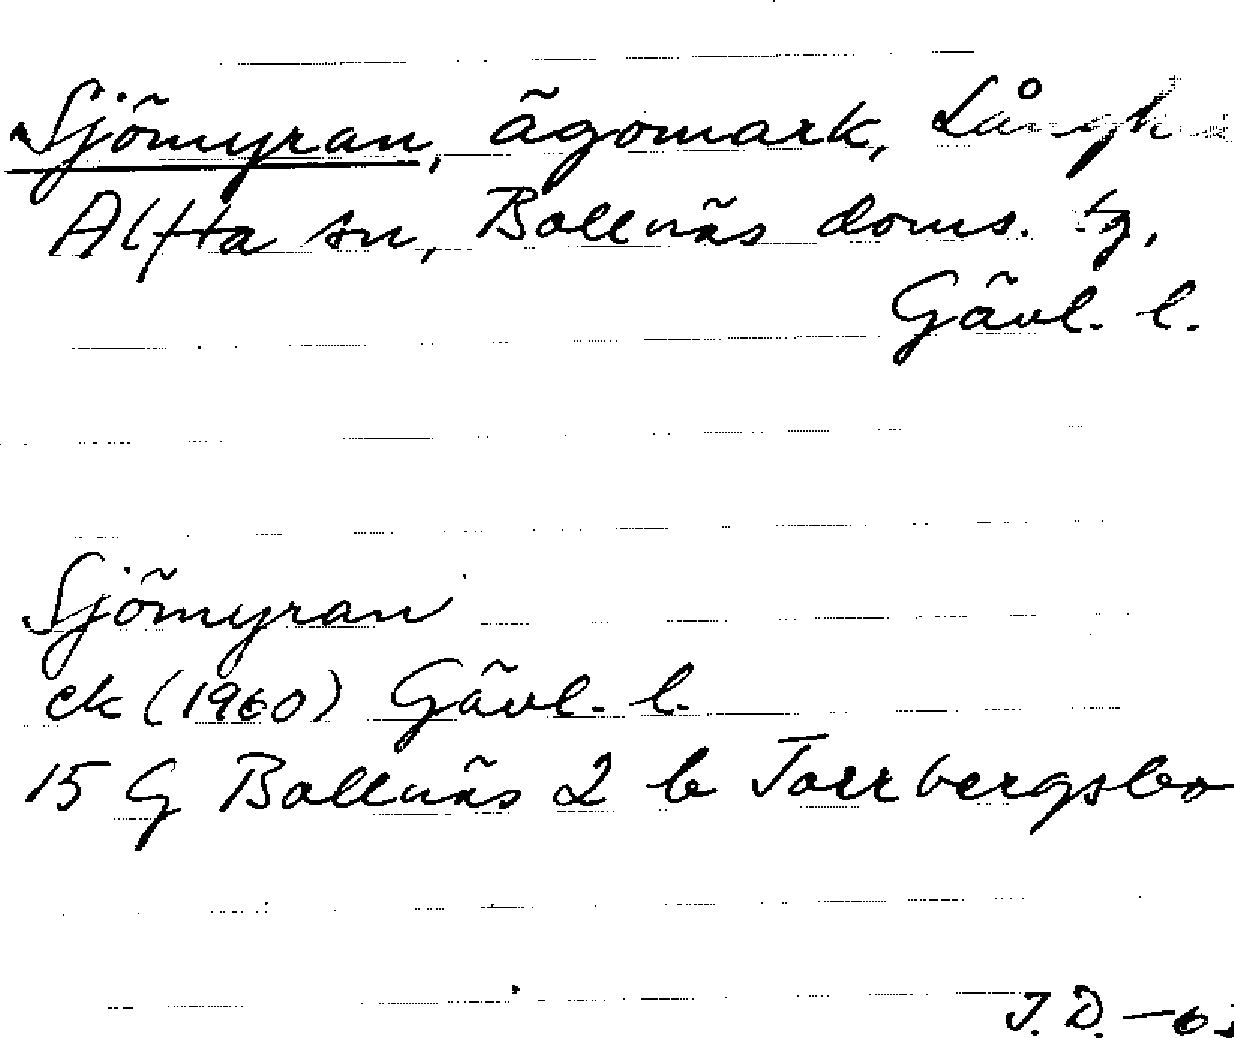 Sjömyran, ägomark,
Alfta sn, Bollnäs doms. tg,
Gävl. l.
Sjömyran
ek (1960) Gävl. l.
15 G Bollnäs 2 b Torrbergsbo
J. D. -